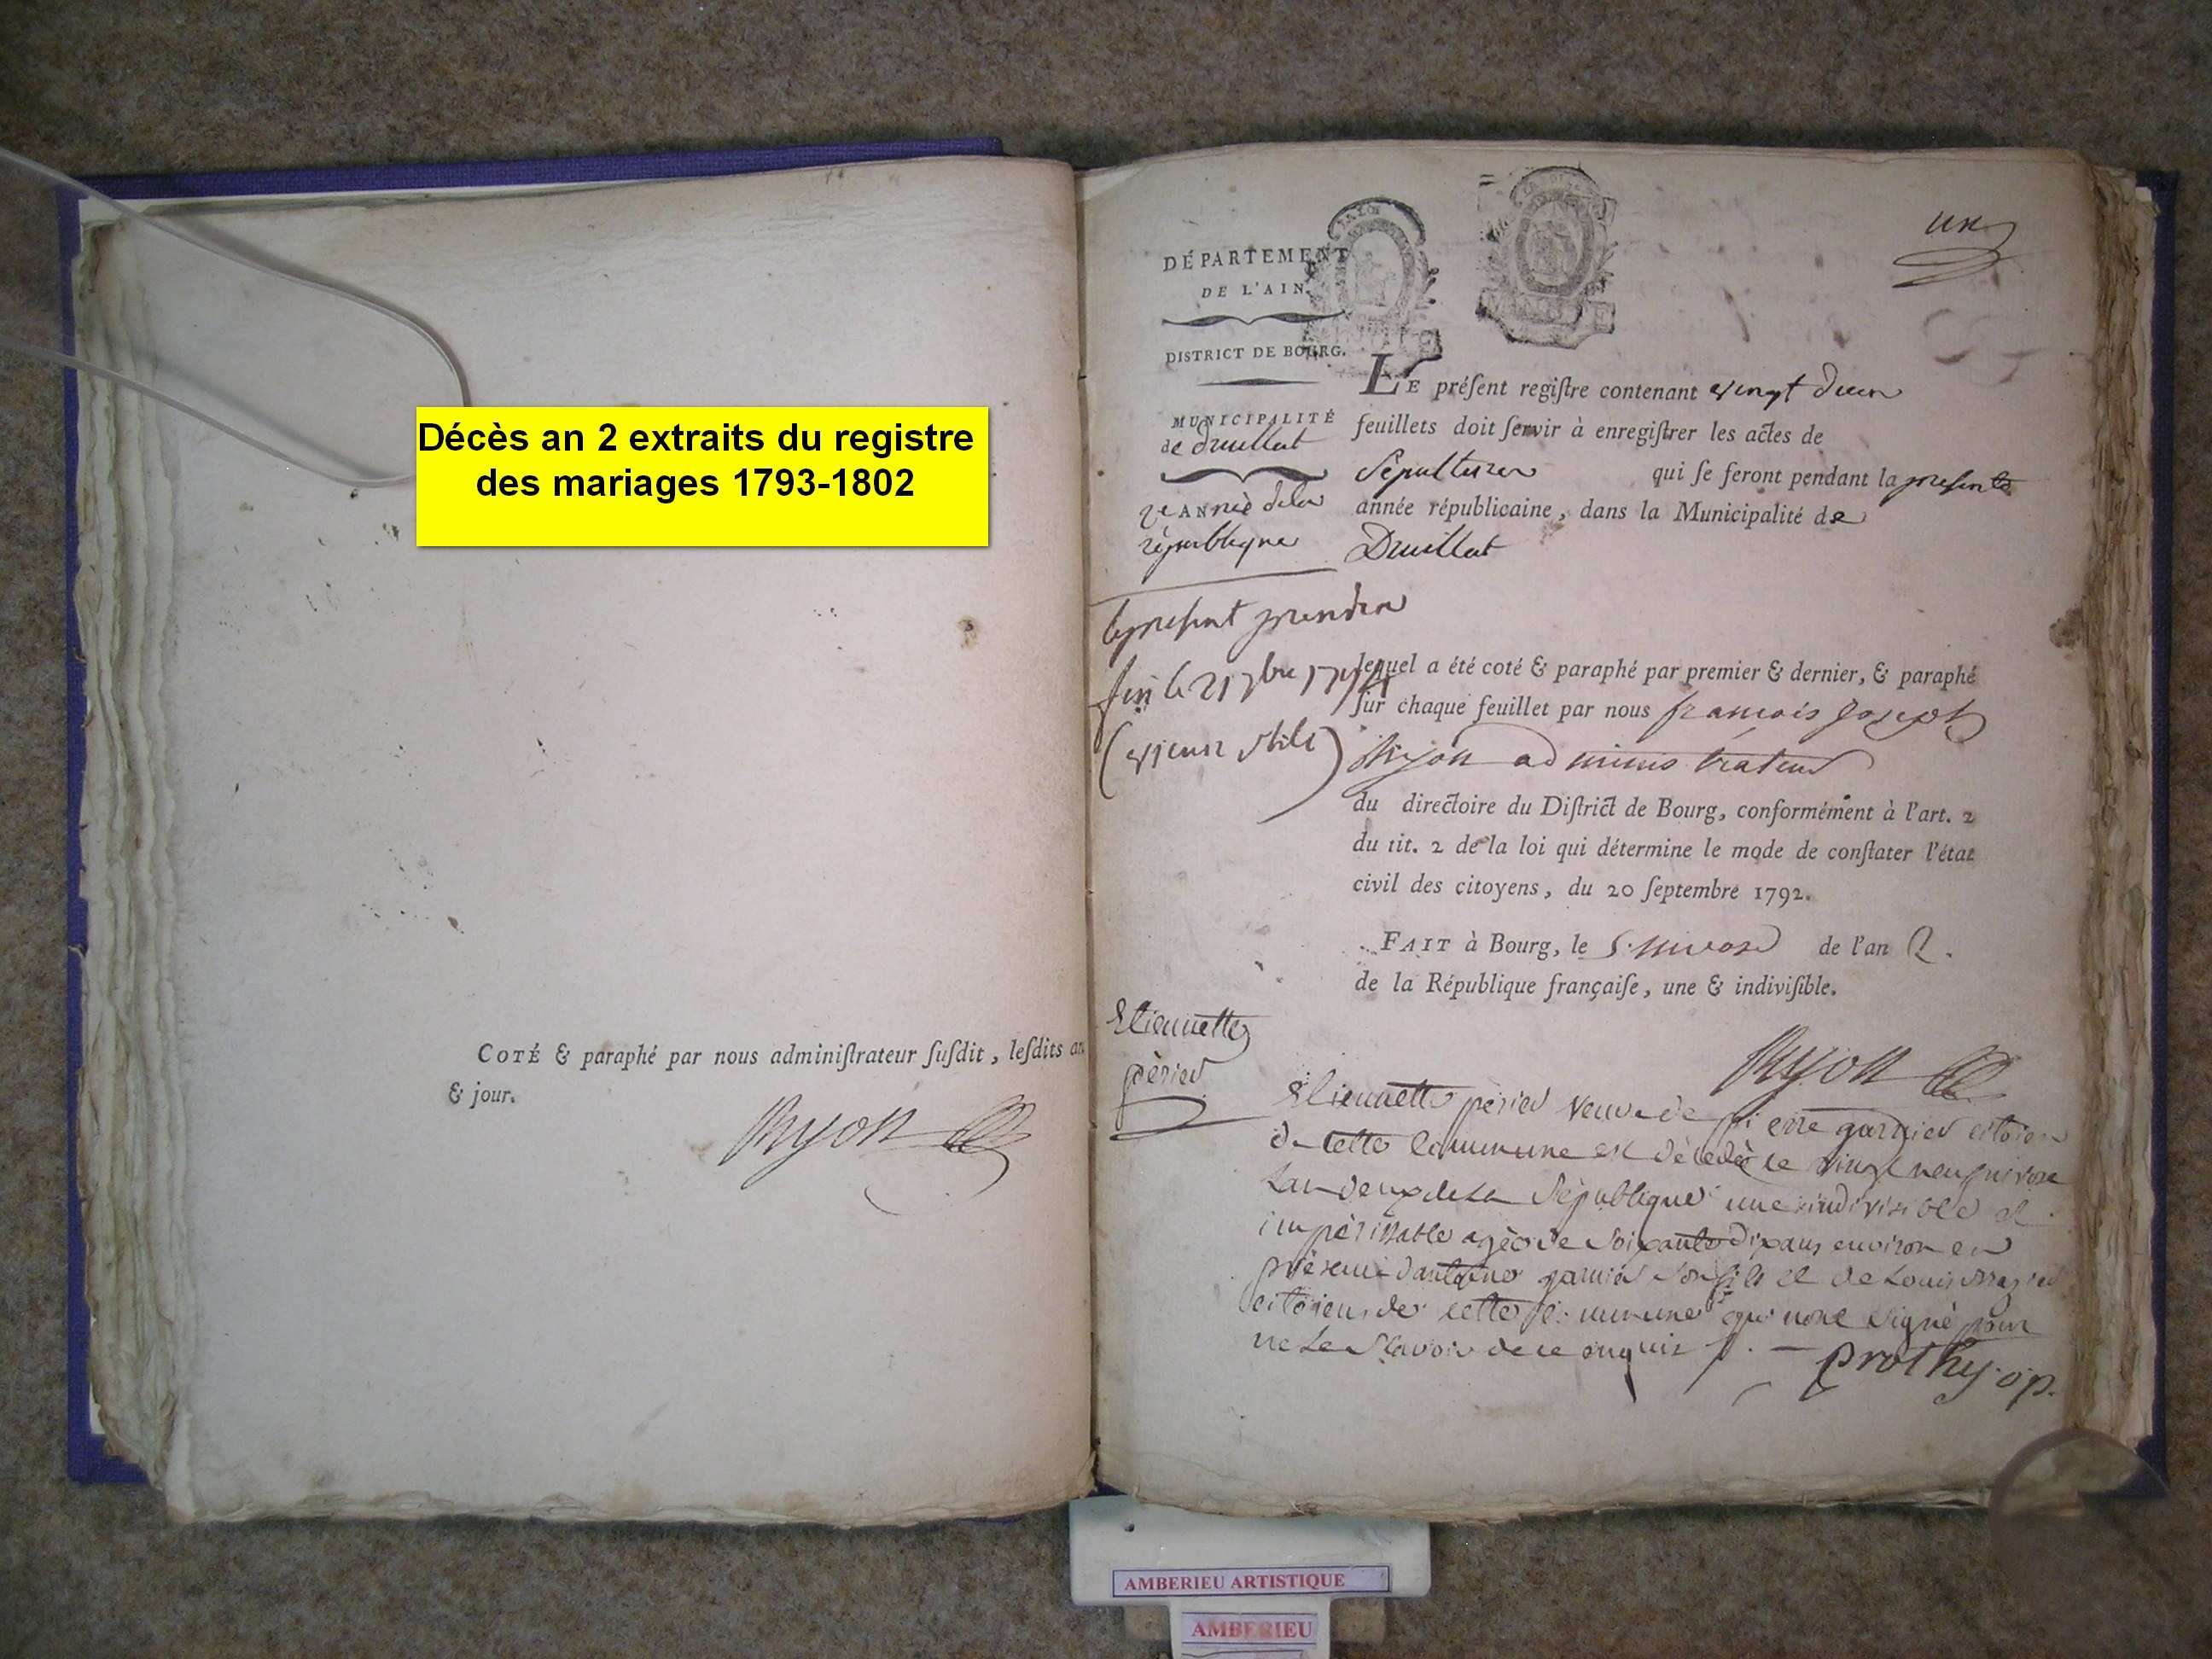 Décès an 2 extraits du registre
des mariages 1793-1802
COTÉ & paraphé par nous adminiſtrateur ſuſdit, leſdits an
& jour.
Ryon
un
DÉPARTEMENT
DE L'AIN.
DISTRICT DE BOURG.
MUNICIPALITÉ
de druillat
2e ANnée de la
république
LE préſent regiſtre contenant vingt deux
feuillets doit ſervir à enregiſtrer les actes de
Sépultures qui ſe feront pendant la presente
année républicaine, dans la Municipalité de
Druillat
le present prendra
fin le 21 7bre 1794
(vieux stile)
lequel a été coté & paraphé par premier & dernier, & paraphé
ſur chaque feuillet par nous francois Joseph
Ryon administrateur
du directoire du Diſtrict de Bourg, conformément à l'art. 2
du tit. 2 de la loi qui détermine le mode de conſtater l'état
civil des citoyens, du 20 ſeptembre 1792.
FAIT à Bourg, le 5. nivose de l'an 2.
de la République françaiſe, une & indiviſible.
Ryon
Etiennette
périer
Etiennette périer veuve de pierre garnier citoien
de cette Commune est décédée le vingt neuf nivose
Lan deux de La République une indivisible et
impérissable agée de soixante dix ans environ en
présence dantoine garnier son fils et de Louis
citoiens de cette commune qui nont signé pour
ne Le Scavoir de ce enquis
prothy. op.
AMBERIEU ARTISTIQUE
AMBERIEU